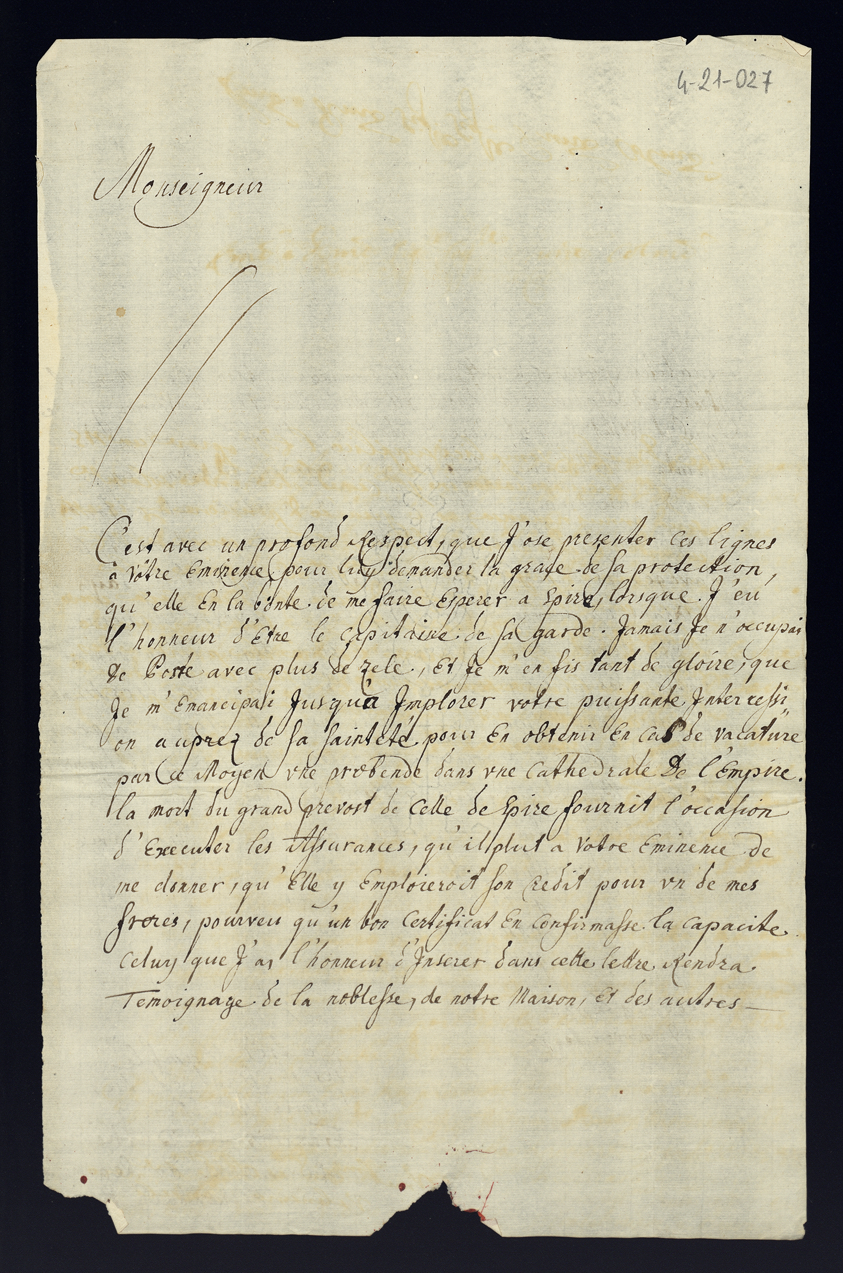 4-21-027
Monseigneur
C'est avec un profond Respect, que J'ose presenter ces lignes
à Vôtre Eminence, pour luy demander la grace de sa protection,
qu'elle En la bonte de me faire Esperer a Spire, lorsque J'eu
l'honneur d'Etre le Capitaine de sa garde. Jamais Je n'occupai
De Poste avec plus de zele, Et Je m'en fis tant de gloire, que
Je m'Emancipai Jusqu'a Jmplorer votre puissante Jntercessi
on auprez de sa sainteté pour En obtenir En cas de vacature
par ce Moyen vne præbende dans vne Cathedrale De l'Empire.
la mort du grand prevost de Celle de Spire fournit l'occasion
d'Executer les Assurances, qu'il plut a Votre Eminence de
me donner, qu'Elle y Emploieroit son Credit pour vn de mes
freres, pourveu qu'un bon Certificat En Confirmasse la capacite
Celuy que J'ay l'honneur d'Jnserer dans cette lettre Rendra
Temoignage de la noblesse, de notre Maison, Et des autres